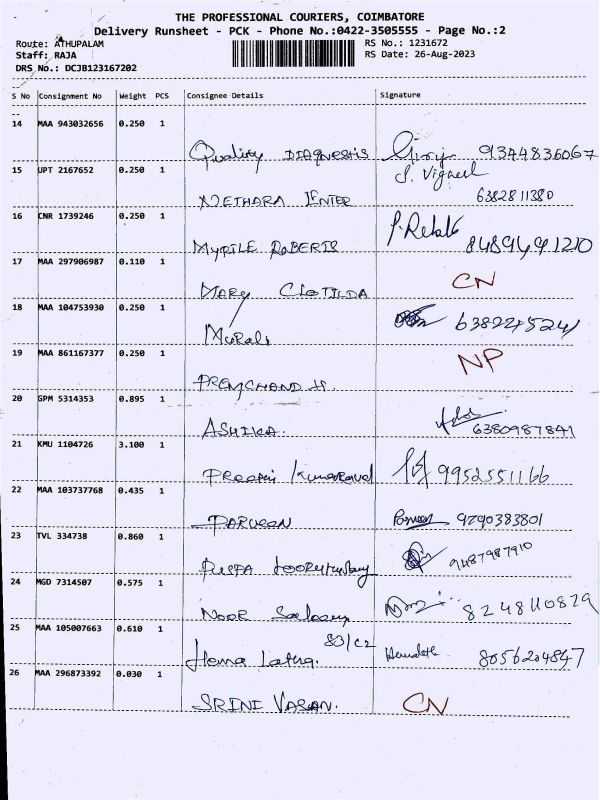 THE PROFESSIONAL COURIERS, COIMBATORE
Delivery Runsheet - PCK - Phone No.:0422-3505555 - Page No.:2
Route: ATHUPALAM
Staff: RAJA
DRS No.: DCJB123167202
RS No.: 1231672
RS Date: 26-Aug-2023
S No Consignment No Weight PCS Consignee Details Signature
14 MAA 943032656 0.250 1
Quality DIAGNESTIS 9344836067
15 UPT 2167652 0.250 1
S. Vignesh
6382811380
16 CNR 1739246 0.250 1
MYRTLE ROBERTS 8489491210
17 MAA 297906987 0.110 1
MARY CLOTILDA CN
18 MAA 104753930 0.250 1
Murali 6382275241
19 MAA 861167377 0.250 1
PREMCHAND H. NP
20 GPM 5314353 0.895 1
ASHIKA. 6380987841
21 KMU 1104726 3.100 1
9952551166
22 MAA 103737768 0.435 1
PARVEEN 9290383801
23 TVL 334738 0.860 1
9487987910
24 MGD 7314507 0.575 1
NOOR 8248110829
25 MAA 105007663 0.610 1
80/C2
Hema Latha. Hemalatha 8056204847
26 MAA 296873392 0.030 1
SRINI VASAN. CN